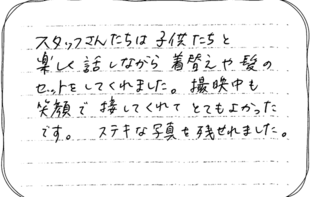 スタッフさんたちは 子供たちと
楽しく 話しながら 着替えや 髪の
セットをしてくれました。撮映中も
笑顔で 接してくれて とてもよかった
です。 ステキな写真も 残せれました。